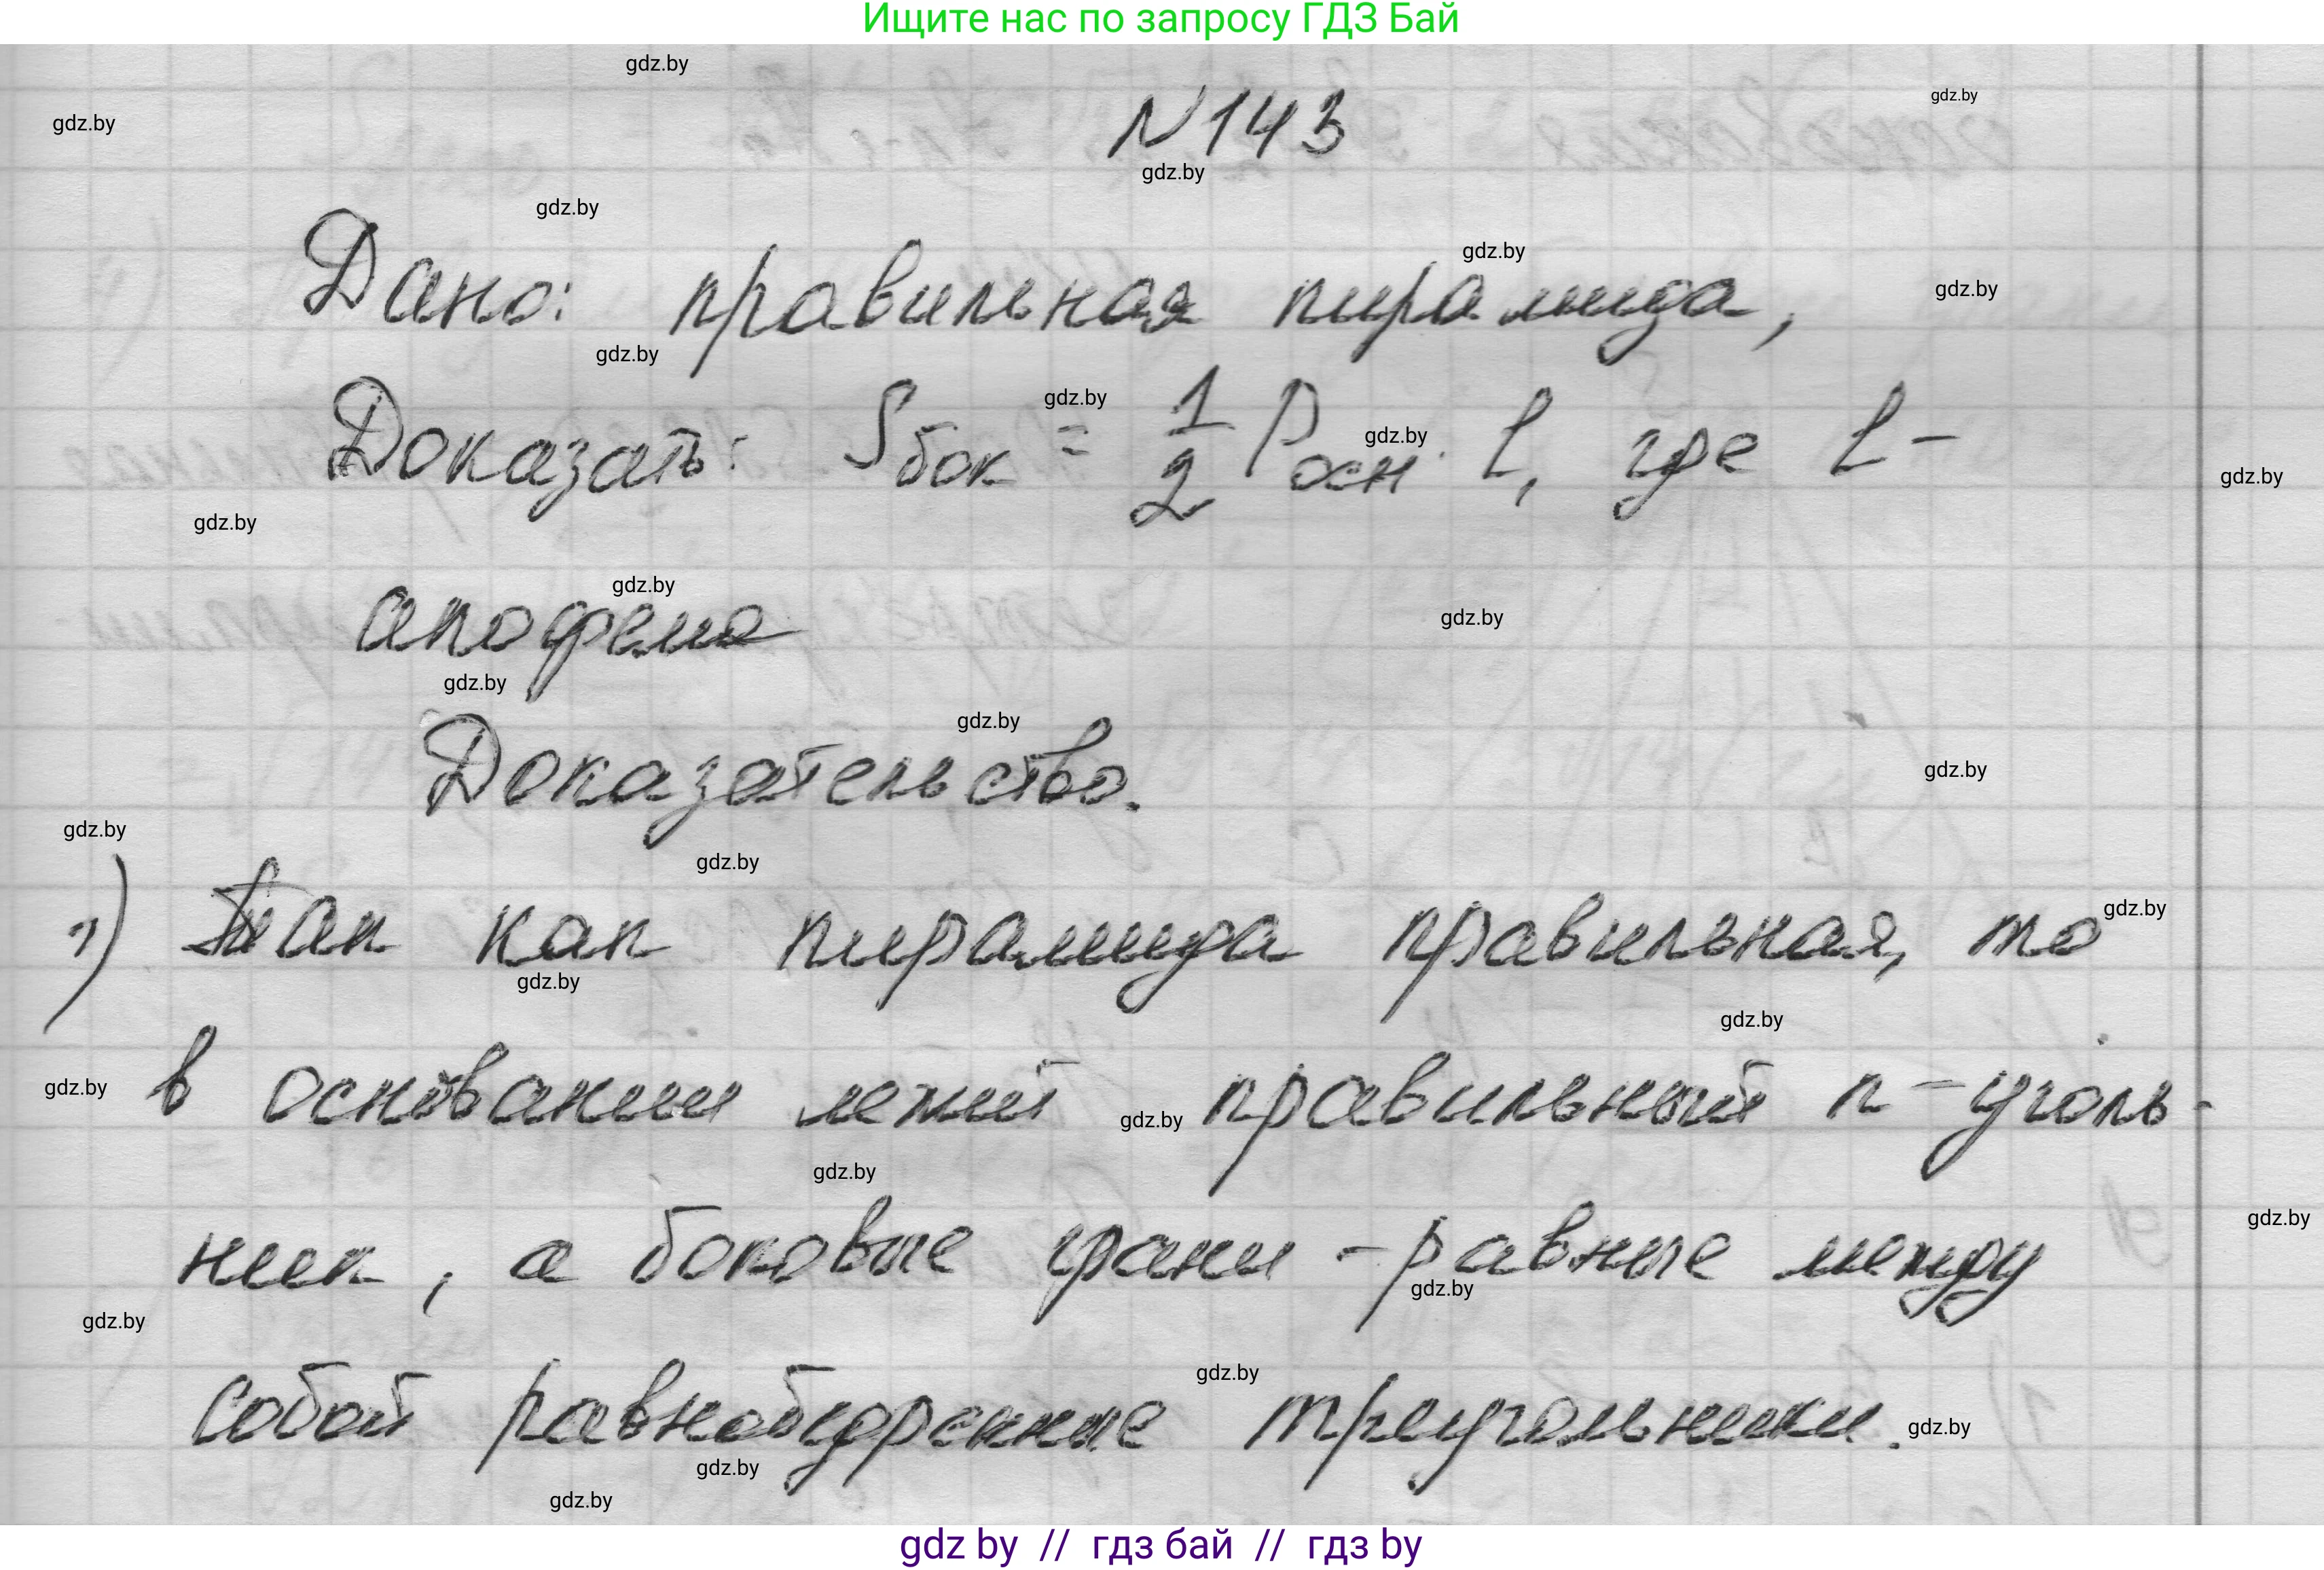 Ищите нас по запросу ГДЗ Бай
gdz.by
gdz.by
gdz.by
N 143
gdz.by
gdz.by
gdz.by
gdz.by
Дано: правильная пирамида,
gdz.by
gdz.by
Доказать: Sбок = 1/2 Pосн · l, где l –
gdz.by
gdz.by
gdz.by
gdz.by
gdz.by
апофема
gdz.by
gdz.by
Доказательство.
gdz.by
gdz.by
gdz.by
1) Так как пирамида правильная, то
gdz.by
gdz.by
gdz.by
в основании лежит правильный n-уголь-
gdz.by
gdz.by
gdz.by
ник, а боковые грани - равные между
gdz.by
gdz.by
gdz.by
gdz.by
собой равнобедренные треугольники.
gdz.by
gdz.by
gdz.by
gdz by // гдз бай // гдз by